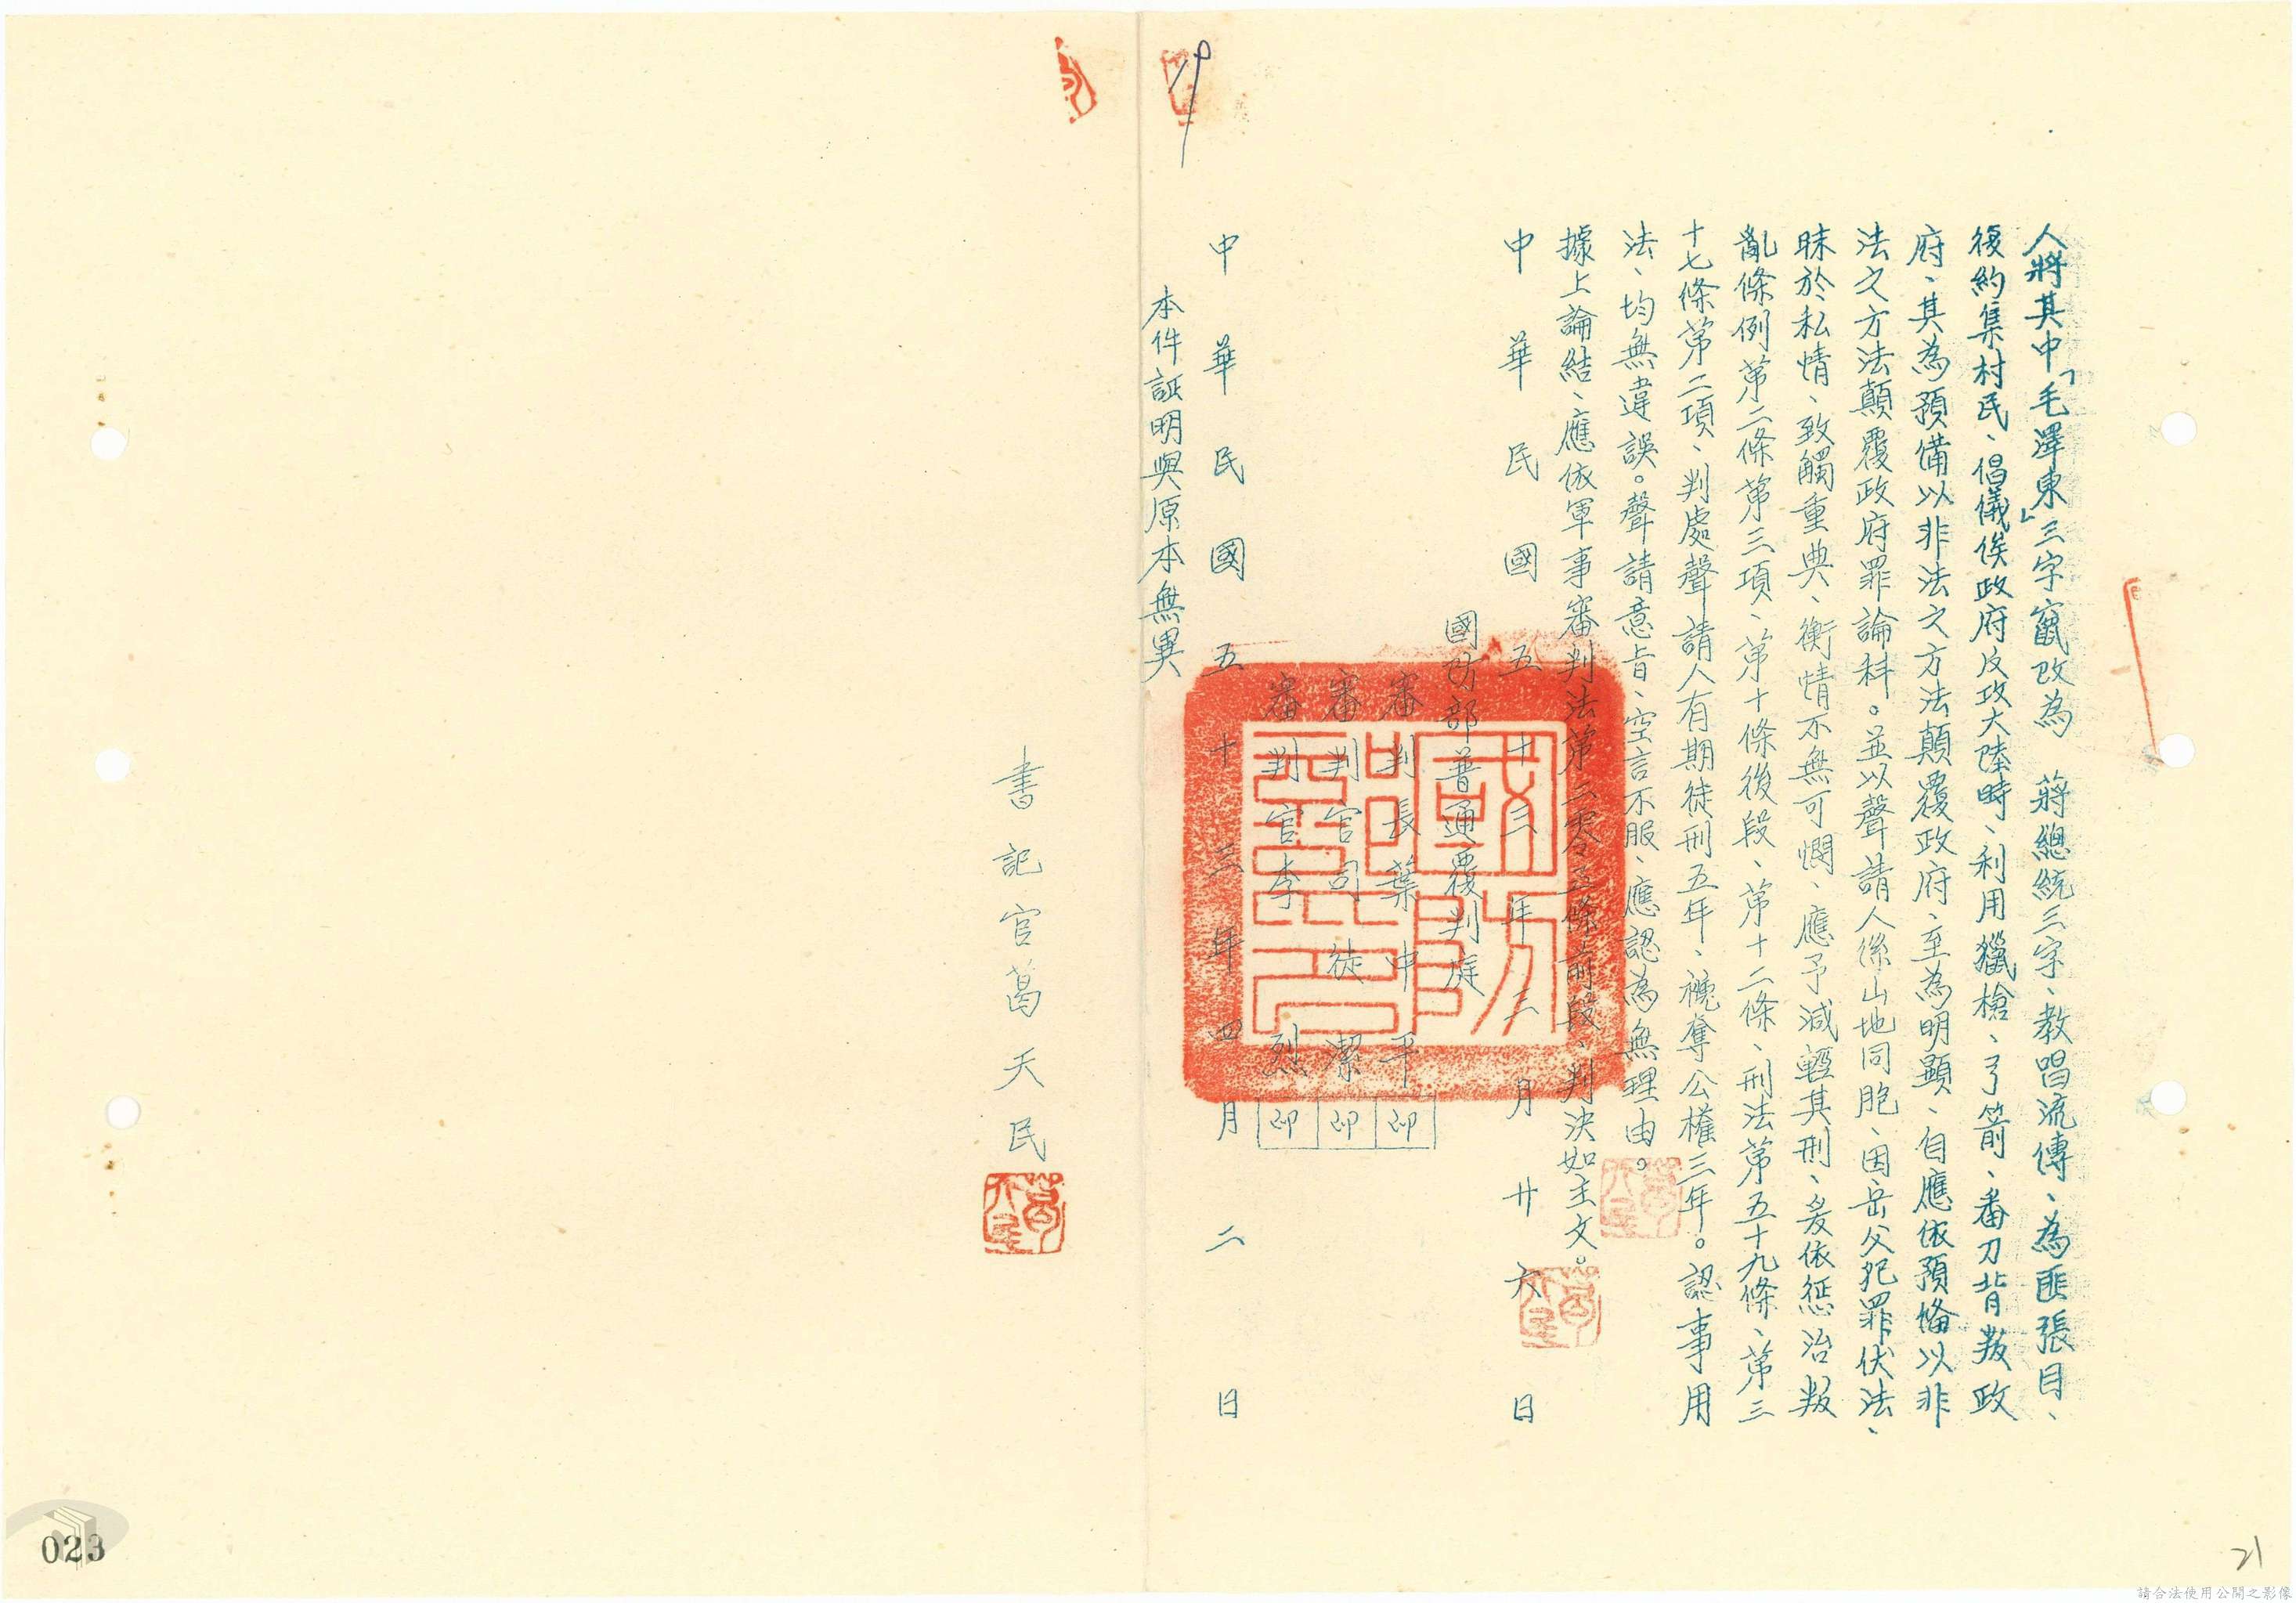 人將其中「毛澤東」三字竄改為　蔣總統三字、教唱流傳、為匪張目、
後約集村民、倡儀俟政府反攻大陸時、利用獵槍、弓箭、番刀背叛政
府、其為預備以非法之方法顛覆政府、至為明顯、自應依預備以非
法之方法顛覆政府罪論科。並以聲請人係山地同胞、因岳父犯罪伏法、
昧於私情、致觸重典、衡情不無可憫、應予減輕其刑、爰依懲治叛
亂條例第二條第三項、第十條後段、第十二條、刑法第五十九條、第三
十七條第二項、判處聲請人有期徒刑五年、褫奪公權三年。認事用
法、均無違誤。聲請意旨、空言不服、應認為無理由。
據上論結、應依軍事審判法第二零五條前段、判決如主文。
中華民國五十三年三月廿六日
國防部普通覆判庭
審判長葉中平印
審判官司徒潔印
審判官李烈印
中華民國五十三年四月二日
本件証明與原本無異
書記官葛天民
葛天民
葛天民
葛天民
023
21
請合法使用公開之影像